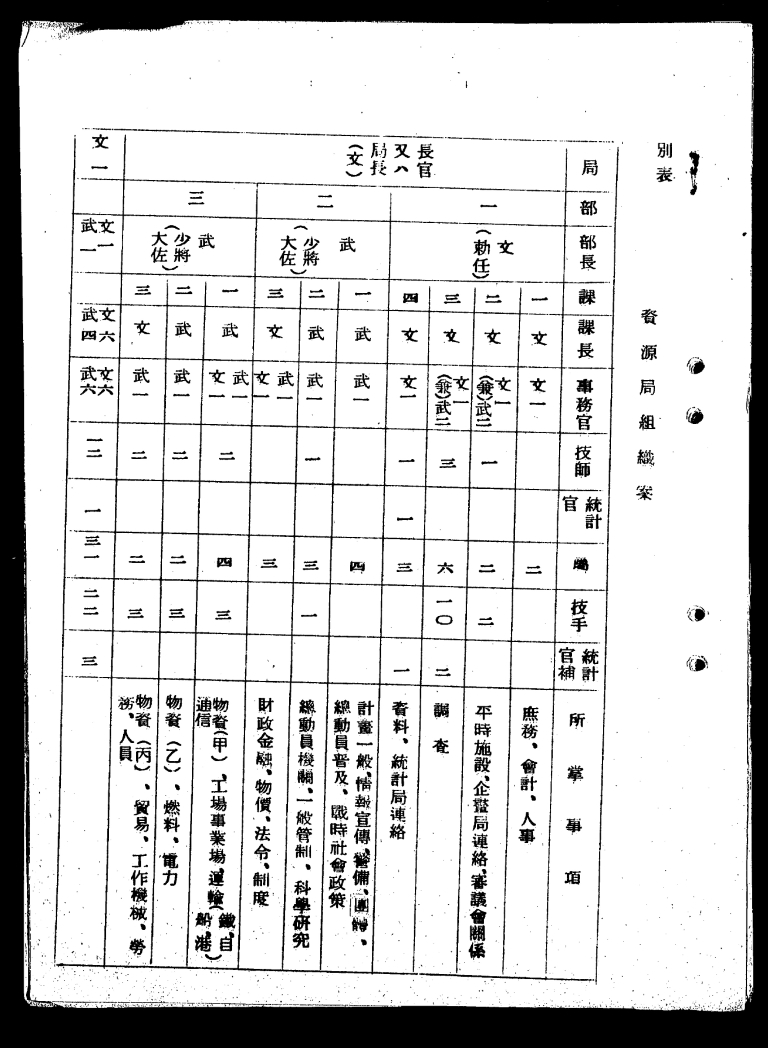 別表
資源局組織案
局 部 部長 課 課長 事務官 技師 統計官 屬 技手 統計官補 所掌事項
長官又ハ局長(文)
一 文(勅任)
一 文 文一 二 庶務、會計、人事
二 文 文一(兼)武二 一 二 二 平時施設、企畫局連絡、審議會關係
三 文 文一(兼)武二 三 六 一〇 二 調査
四 文 文一 一 一 三 一 資料、統計局連絡
二 武(少將大佐)
一 武 武一 四 計畫一般、情報宣傳、警備、團體、總動員普及、戰時社會政策
二 武 武一 一 三 一 總動員機關、一般管制、科學研究
三 文 武一文一 三 財政金融、物價、法令、制度
三 武(少將大佐)
一 武 武一文一 二 四 三 物資(甲)、工場事業場、運輸(鐵、自、船、港)通信
二 武 武一 二 二 三 物資(乙)、燃料、電力
三 文 武一 二 二 三 物資(丙)、貿易、工作機械、勞務、人員
文一 文一武一 文六武四 文六武六 一二 一 三一 二二 三